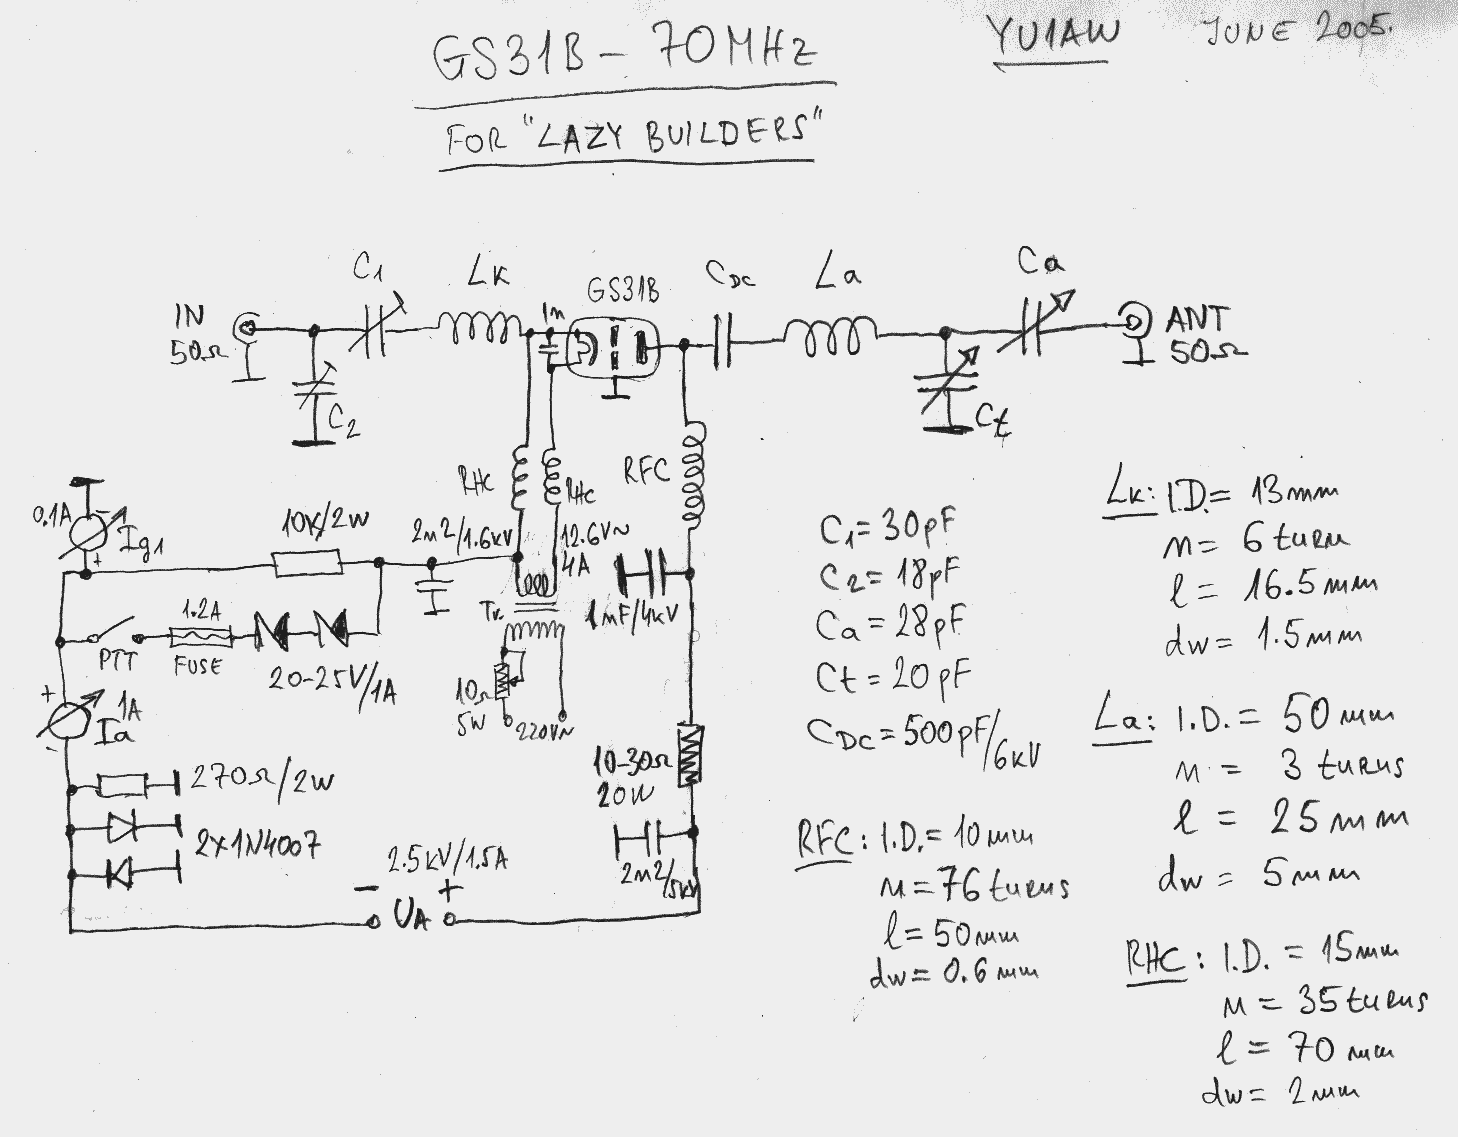 GS31B – 70MHz
YU1AW JUNE 2005.
FOR "LAZY BUILDERS"
C1
LK
1n
GS31B
CDC
La
Ca
IN
50Ω
ANT
50Ω
C2
Ct
RHC
RHC
RFC
0.1A
Ig1
10K/2W
2n2/1.6kV
12.6V~
4A
1nF/4kV
Tr.
1.2A
FUSE
PTT
20-25V/1A
10Ω
5W
220V~
1A
Ia
10-30Ω
20W
270Ω/2W
2x1N4007
2.5kV/1.5A
2n2/5kV
– UA +
C1= 30pF
C2= 18pF
Ca = 28pF
Ct = 20pF
CDC = 500pF/6kV
RFC: I.D.= 10mm
n = 76 turns
l = 50mm
dw = 0.6 mm
LK: I.D.= 13mm
n = 6 turn
l = 16.5mm
dw = 1.5mm
La: I.D. = 50mm
n = 3 turns
l = 25mm
dw = 5mm
RHC: I.D. = 15mm
n = 35 turns
l = 70 mm
dw = 2mm